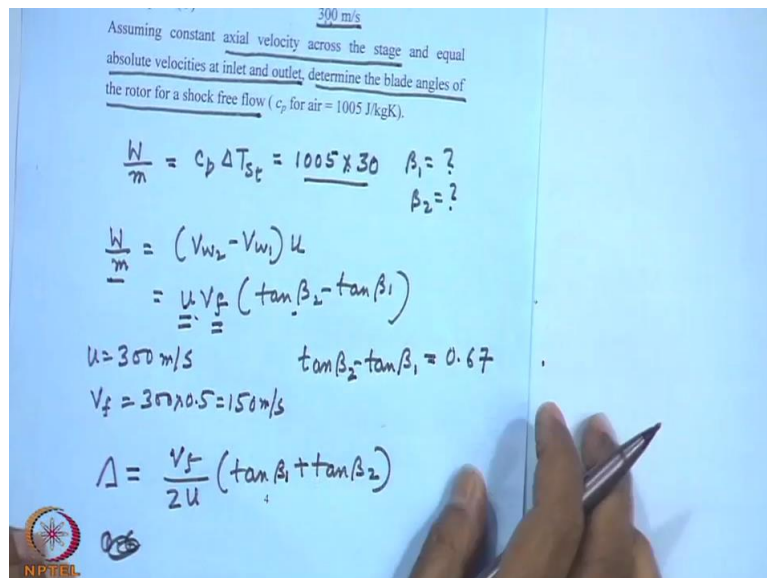 300 m/s
Assuming constant axial velocity across the stage and equal
absolute velocities at inlet and outlet, determine the blade angles of
the rotor for a shock free flow ( cp for air = 1005 J/kgK).
W/m = cp ΔTSt = 1005 × 30 β1 = ?
β2 = ?
W/m = (Vw2 - Vw1) u
= u Vf (tan β2 - tan β1)
u = 300 m/s tan β2 - tan β1 = 0.67
Vf = 300×0.5 = 150 m/s
Λ = Vf/2u (tan β1 + tan β2)
4
NPTEL